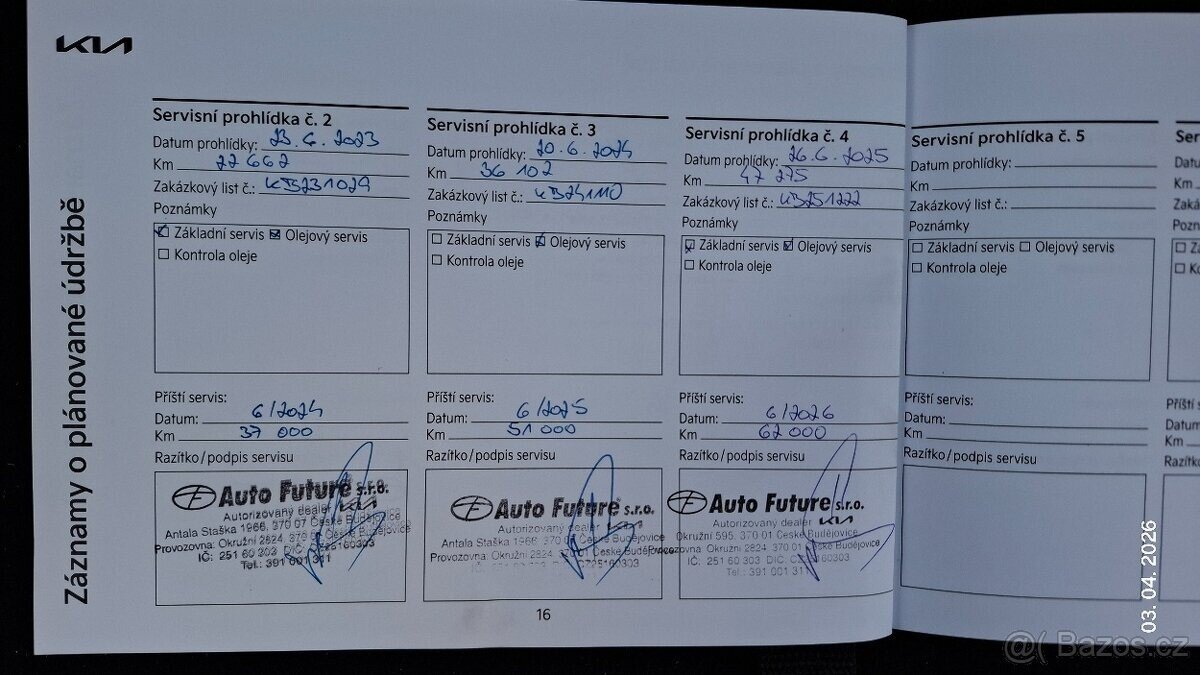 KIA
Záznamy o plánované údržbě
Servisní prohlídka č. 2
Datum prohlídky: 23.6.2023
Km 22 662
Zakázkový list č.: KB231029
Poznámky
Základní servis Olejový servis
Kontrola oleje
Příští servis:
Datum: 6/2024
Km 37 000
Razítko/podpis servisu
Auto Future s.r.o.
Autorizovaný dealer KIA
Antala Staška 1966, 370 07 České Budějovice
Provozovna: Okružní 2824, 370 01 České Budějovice
IČ: 251 60 303 DIČ: CZ25160303
Tel.: 391 001 311
Servisní prohlídka č. 3
Datum prohlídky: 20.6.2024
Km 36 102
Zakázkový list č.: KB241110
Poznámky
Základní servis Olejový servis
Kontrola oleje
Příští servis:
Datum: 6/2025
Km 51 000
Razítko/podpis servisu
Auto Future s.r.o.
Autorizovaný dealer KIA
Antala Staška 1966, 370 07 České Budějovice
Provozovna: Okružní 2824, 370 01 České Budějovice
CZ25160303
Servisní prohlídka č. 4
Datum prohlídky: 26.6.2025
Km 47 275
Zakázkový list č.: KB251222
Poznámky
Základní servis Olejový servis
Kontrola oleje
Příští servis:
Datum: 6/2026
Km 62 000
Razítko/podpis servisu
Auto Future s.r.o.
Autorizovaný dealer KIA
Okružní 595, 370 01 České Budějovice
Provozovna: Okružní 2824, 370 01 České Budějovice
IČ: 251 60 303 DIČ: CZ25160303
Tel.: 391 001 311
Servisní prohlídka č. 5
Datum prohlídky:
Km
Zakázkový list č.:
Poznámky
Základní servis Olejový servis
Kontrola oleje
Příští servis:
Datum:
Km
Razítko/podpis servisu
Km
16
03.04.2026
@( Bazos.cz